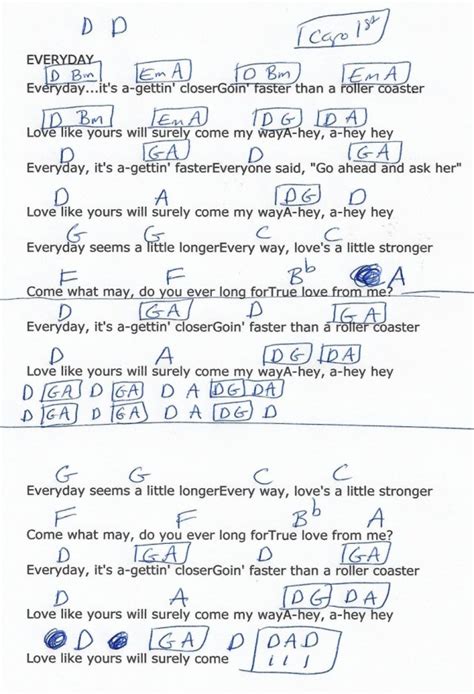 D D Capo 1st
EVERYDAY
D Bm Em A D Bm Em A
Everyday...it's a-gettin' closerGoin' faster than a roller coaster
D Bm Em A D G D A
Love like yours will surely come my wayA-hey, a-hey hey
D G A D G A
Everyday, it's a-gettin' fasterEveryone said, "Go ahead and ask her"
D A D G D
Love like yours will surely come my wayA-hey, a-hey hey
G G C C
Everyday seems a little longerEvery way, love's a little stronger
F F Bb A
Come what may, do you ever long forTrue love from me?
D G A D G A
Everyday, it's a-gettin' closerGoin' faster than a roller coaster
D A D G D A
Love like yours will surely come my wayA-hey, a-hey hey
D G A D G A D A D G D A
D G A D G A D A D G D
G G C C
Everyday seems a little longerEvery way, love's a little stronger
F F Bb A
Come what may, do you ever long forTrue love from me?
D G A D G A
Everyday, it's a-gettin' closerGoin' faster than a roller coaster
D A D G D A
Love like yours will surely come my wayA-hey, a-hey hey
D G A D D A D
Love like yours will surely come